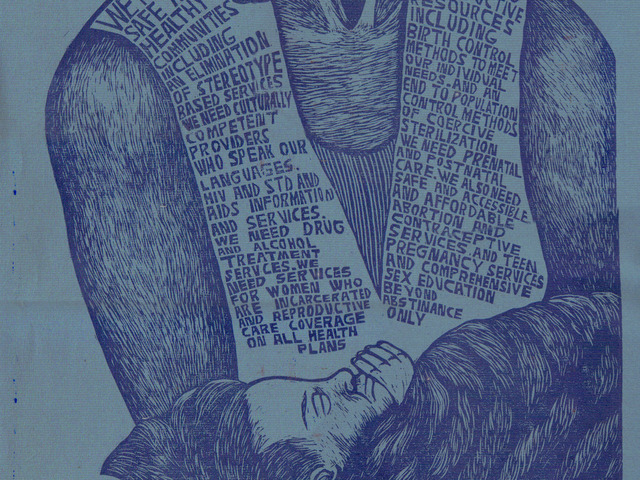 WE
SAFE
HEALTHY
COMMUNITIES
INCLUDING
AN ELIMINATION
OF STEREOTYPE
BASED SERVICES
WE NEED CULTURALLY
COMPETENT
PROVIDERS
WHO SPEAK OUR
LANGUAGES.
HIV AND STD AND
AIDS INFORMATION
AND SERVICES
WE NEED DRUG
AND ALCOHOL
TREATMENT
SERVICES. WE
NEED SERVICES
FOR WOMEN WHO
ARE INCARCERATED
AND REPRODUCTIVE
CARE COVERAGE
ON ALL HEALTH
PLANS
RESOURCES
INCLUDING
BIRTH CONTROL
METHODS TO MEET
OUR INDIVIDUAL
NEEDS. AND AN
END TO POPULATION
CONTROL METHODS
OF COERCIVE
STERILIZATION
WE NEED PRENATAL
AND POSTNATAL
CARE. WE ALSO NEED
SAFE AND ACCESSIBLE
AND AFFORDABLE
ABORTION AND
CONTRACEPTIVE
SERVICES AND TEEN
PREGNANCY SERVICES
AND COMPREHENSIVE
SEX EDUCATION
BEYOND
ABSTINANCE
ONLY